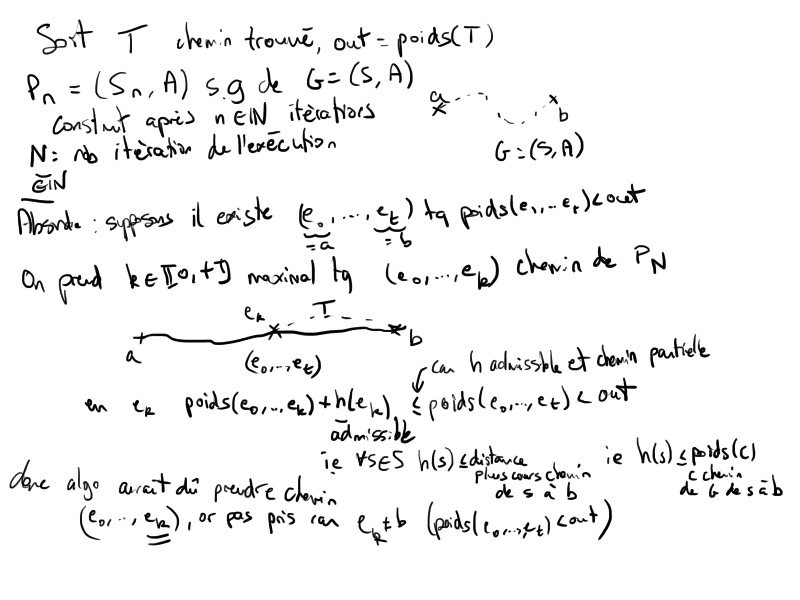 Soit T chemin trouvé, out = poids(T)
Pₙ = (Sₙ, A) s.g de G = (S, A)
construit après n ∈ ℕ itérations
N = nb itération de l'exécution
∈ ℕ
a b
G = (S, A)
Absurde : supposons il existe (e₀, ..., e_t) tq poids(e₀, ... e_t) < out
= a = b
On prend k ∈ ⟦0, t⟧ maximal tq (e₀, ..., e_k) chemin de P_N
e_k T
a b
(e₀, ..., e_t)
car h admissible et chemin partielle
en e_k poids(e₀, ..., e_k) + h(e_k) ≤ poids(e₀, ..., e_t) < out
admissible
ie ∀s∈S h(s) ≤ distance plus cours chemin de s à b
ie h(s) ≤ poids(c) c chemin de G de s à b
donc algo aurait dû prendre chemin
(e₀, ..., e_k), or pas pris car e_k ≠ b (poids(e₀, ..., e_t) < out)